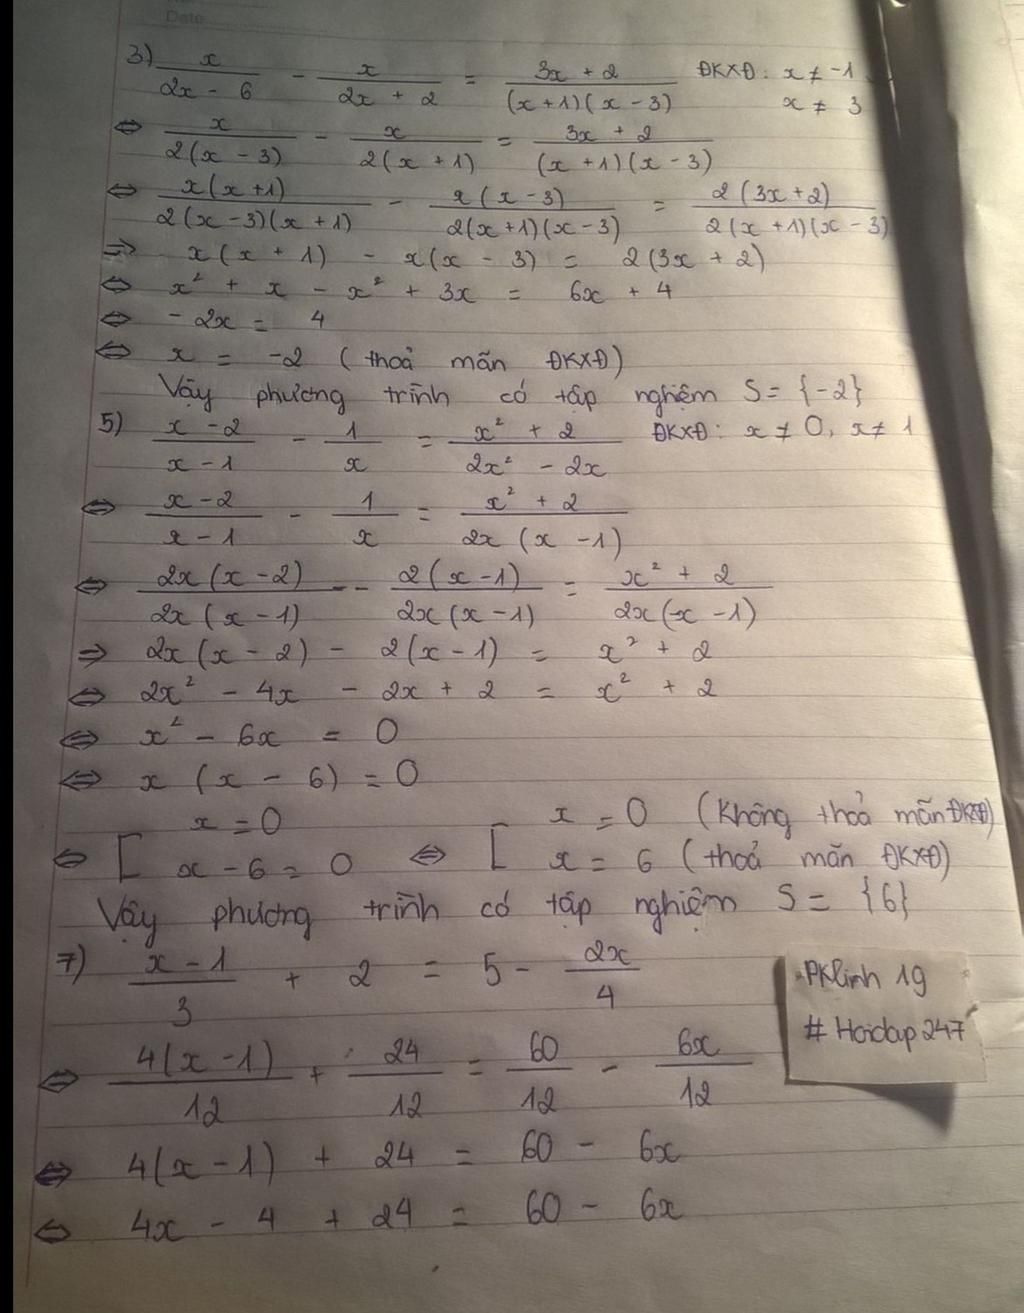 Date
3) x/(2x - 6) - x/(2x + 2) = (3x + 2)/((x+1)(x-3)) ĐKXĐ: x ≠ -1
x ≠ 3
⇔ x/(2(x-3)) - x/(2(x+1)) = (3x + 2)/((x+1)(x-3))
⇔ x(x+1)/(2(x-3)(x+1)) - x(x-3)/(2(x+1)(x-3)) = 2(3x+2)/(2(x+1)(x-3))
=> x(x + 1) - x(x - 3) = 2(3x + 2)
⇔ x² + x - x² + 3x = 6x + 4
⇔ -2x = 4
⇔ x = -2 (thoả mãn ĐKXĐ)
Vậy phương trình có tập nghiệm S = {-2}
5) (x-2)/(x-1) - 1/x = (x² + 2)/(2x² - 2x) ĐKXĐ: x ≠ 0, x ≠ 1
⇔ (x-2)/(x-1) - 1/x = (x² + 2)/(2x(x-1))
⇔ 2x(x-2)/(2x(x-1)) - 2(x-1)/(2x(x-1)) = (x² + 2)/(2x(x-1))
=> 2x(x-2) - 2(x-1) = x² + 2
⇔ 2x² - 4x - 2x + 2 = x² + 2
⇔ x² - 6x = 0
⇔ x(x - 6) = 0
x = 0 x = 0 (Không thoả mãn ĐKXĐ)
⇔ [ x - 6 = 0 ⇔ [ x = 6 (thoả mãn ĐKXĐ)
Vậy phương trình có tập nghiệm S = {6}
7) (x-1)/3 + 2 = 5 - 2x/4
⇔ 4(x-1)/12 + 24/12 = 60/12 - 6x/12
⇔ 4(x-1) + 24 = 60 - 6x
⇔ 4x - 4 + 24 = 60 - 6x
PKLinh 19
# Hoidap247